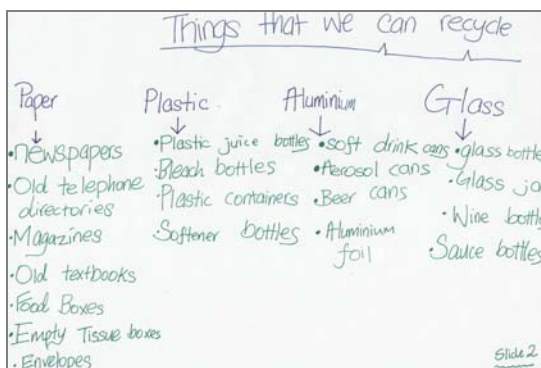 Things that we can recycle
Paper
•newspapers
•Old telephone
directories
•Magazines
•Old textbooks
•Food Boxes
•Empty Tissue boxes
•Envelopes
Plastic
•Plastic juice bottles
•Bleach bottles
•Plastic containers
•Softener bottles
Aluminium
•soft drink cans
•Aerosol cans
•Beer cans
•Aluminium
foil
Glass
•glass bottle
•Glass ja
•Wine bottl
•Sauce bottles
Slide 2